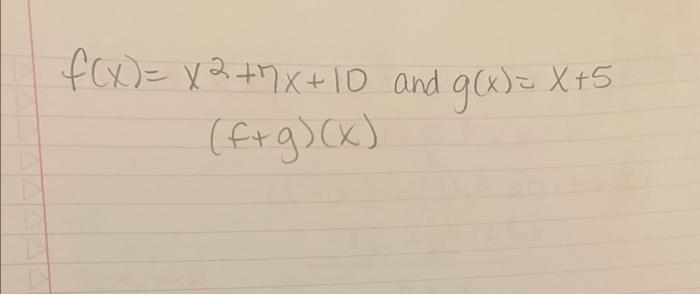 f(x) = x2+7x+10 and g(x) = x+5
(f+g)(x)